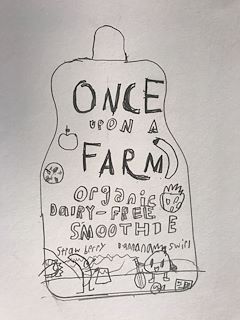 ONCE
UPON A
FARM
organic
DAIRY-FREE
SMOOTHIE
Strawberry banana swirl